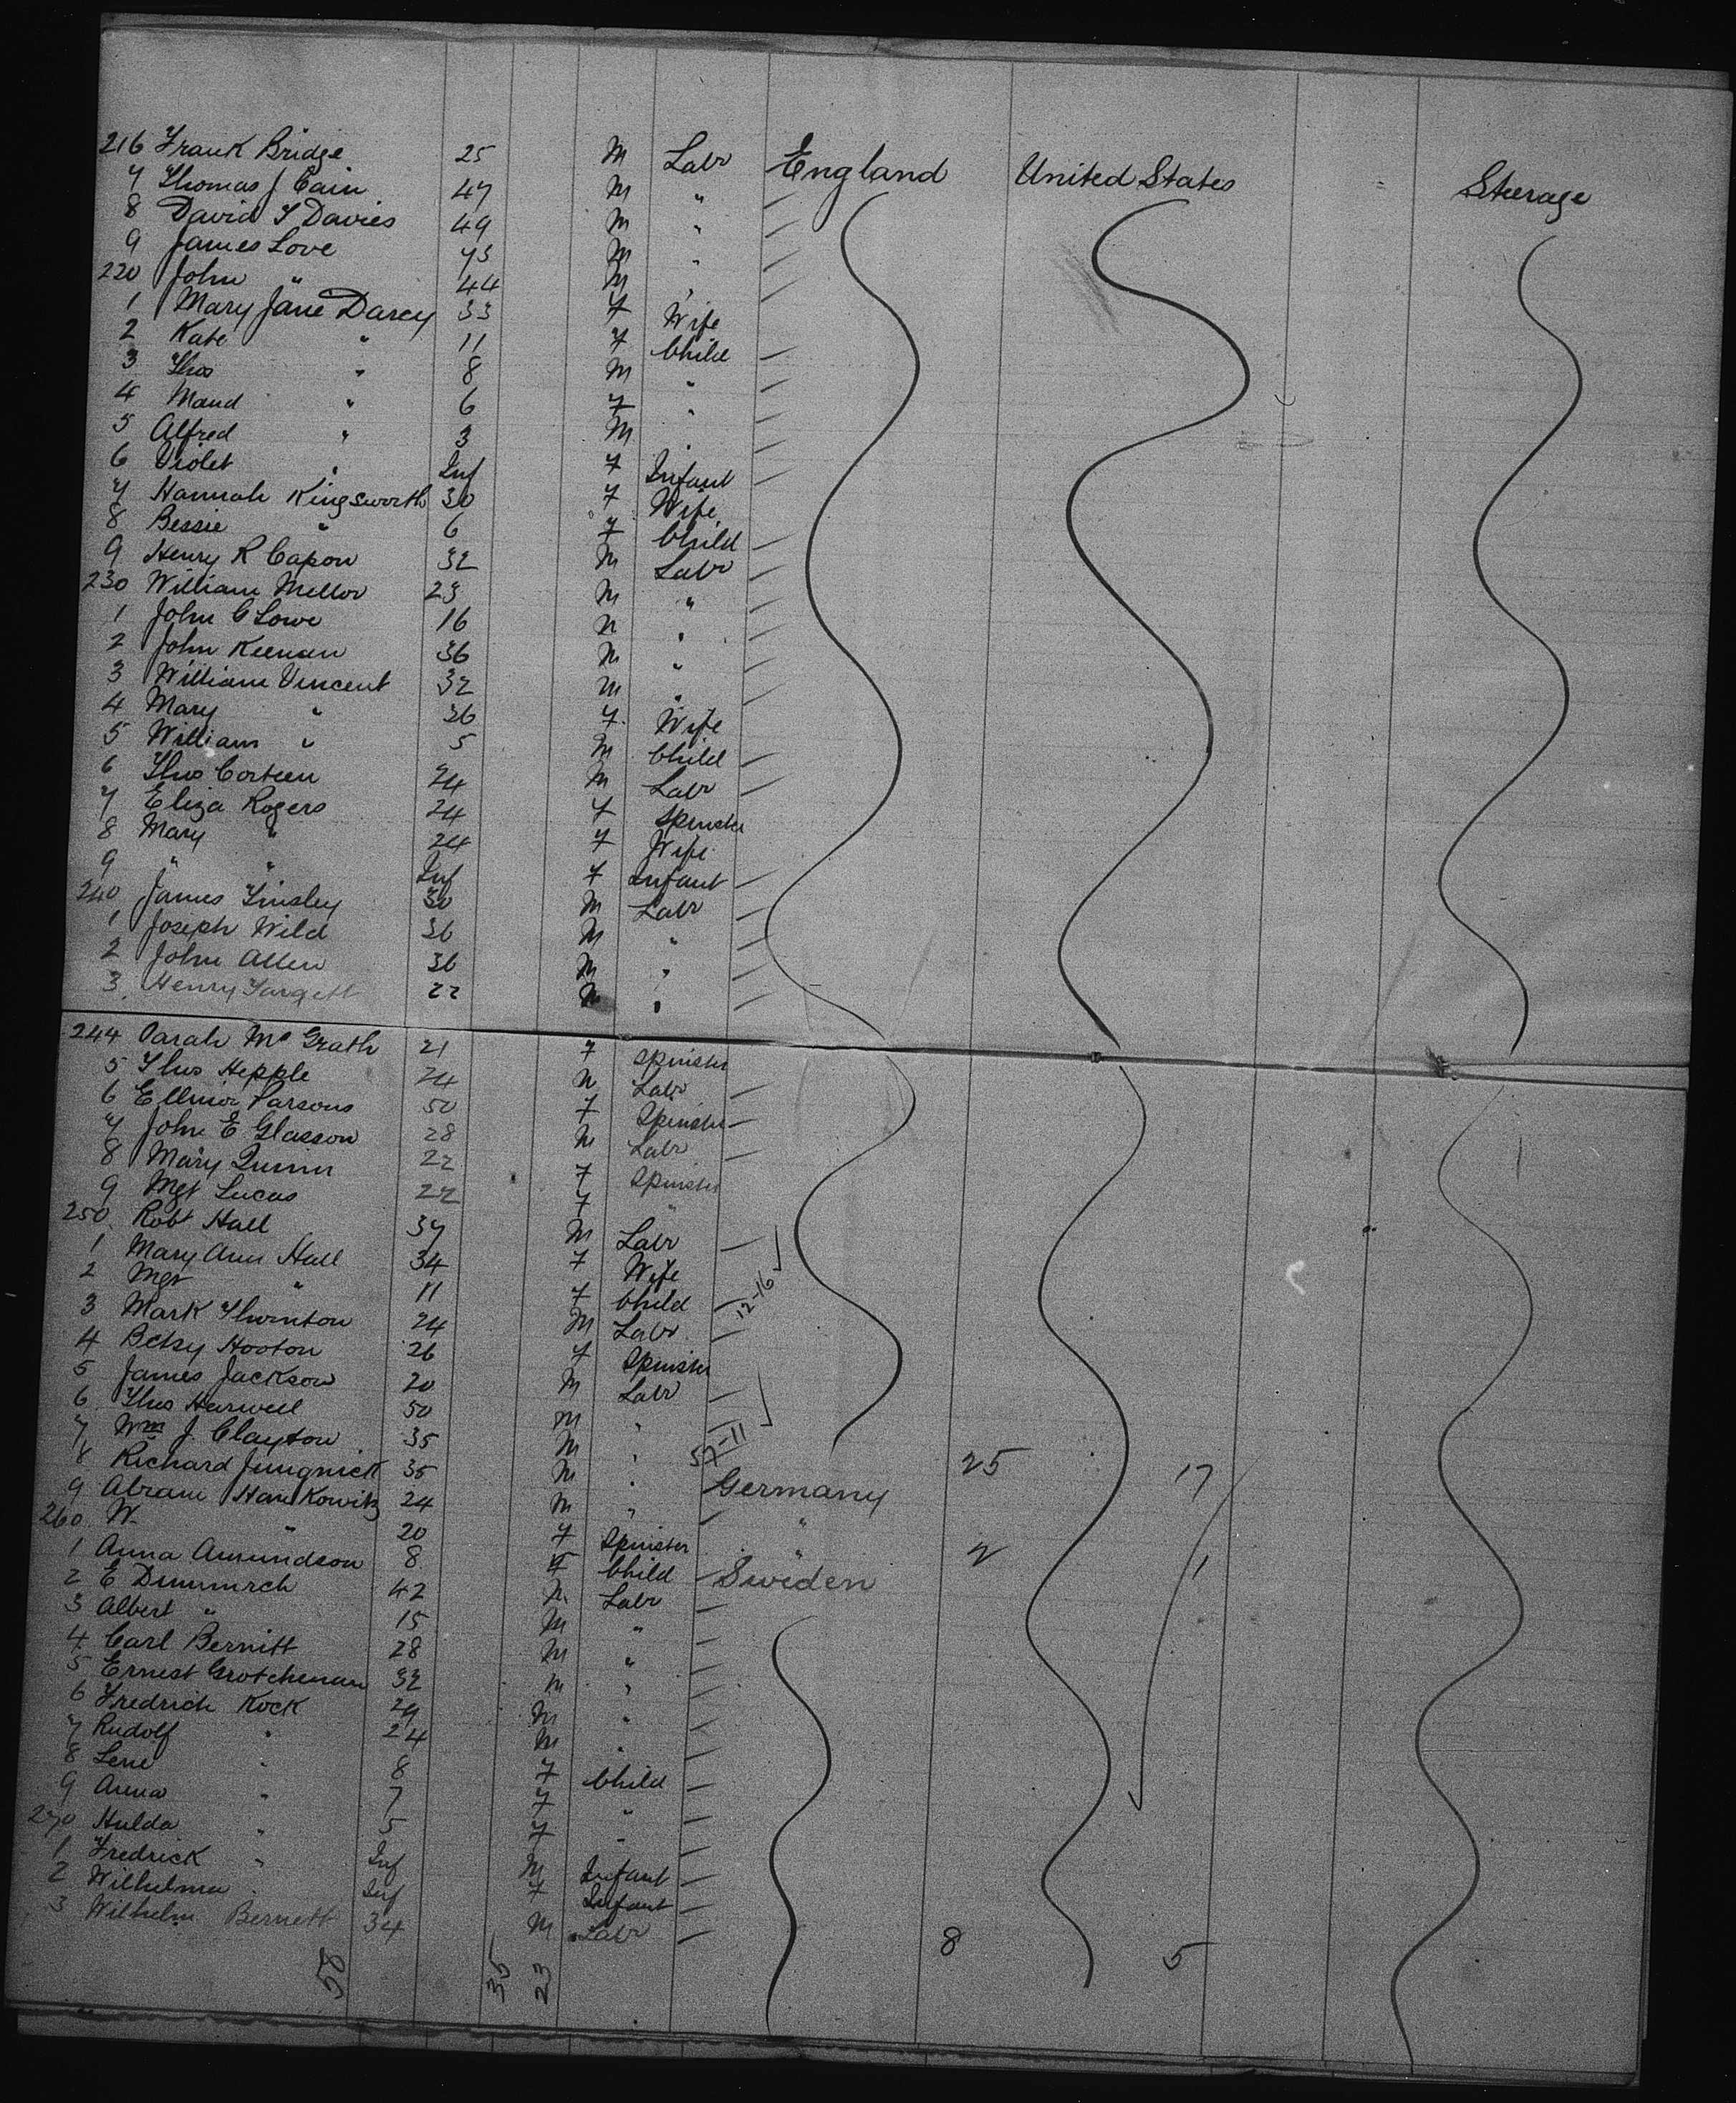 216 Frank Bridge 25 M Labr England United States Steerage
7 Thomas J Cain 47 M "
8 David T Davies 49 M "
9 James Love 43 M "
220 John " 44 M "
1 Mary Jane Darcy 33 F Wife
2 Kate " 11 F Child
3 Thos " 8 M "
4 Maud " 6 F "
5 Alfred " 3 M "
6 Violet " Inf F Infant
7 Hannah Kingsworth 30 F Wife
8 Bessie " 6 F Child
9 Henry R Capon 32 M Labr
230 William Mellor 23 M "
1 John C Lowe 16 M "
2 John Keenan 36 M "
3 William Vincent 32 M "
4 Mary " 36 F Wife
5 William " 5 M Child
6 Thos Corteen 24 M Labr
7 Eliza Rogers 24 F Spinster
8 Mary " 24 F Wife
9 " " Inf F Infant
240 James Tinsley 30 M Labr
1 Joseph Wild 36 M "
2 John Allen 36 M "
3 Henry Targett 22 M "
244 Sarah McGrath 21 F Spinster
5 Thos Hepple 24 M Labr
6 Ellinor Parsons 50 F Spinster
7 John E Glasson 28 M Labr
8 Mary Quinn 22 F Spinster
9 Mgt Lucas 22 F "
250 Robt Hall 37 M Labr
1 Mary Ann Hall 34 F Wife
2 Mgt " 11 F Child 12-16
3 Mark Thornton 24 M Labr
4 Betsy Hooton 26 F Spinster
5 James Jackson 20 M Labr
6 Thos Harwell 50 M "
7 Wm J. Clayton 35 M " 57-11
8 Richard Jungnick 35 M " Germany 25 17
9 Abram Hankowitz 24 M " "
260 W. " 20 F Spinster " 2 1
1 Anna Amundson 8 F Child Sweden
2 E 42 M Labr
3 Albert " 15 M "
4 Carl Bernitt 28 M "
5 Ernest Grotcheman 32 M "
6 Fredrich Kock 29 M "
7 Rudolf " 24 M "
8 Lene " 8 F Child
9 Anna " 7 F "
270 Hulda " 5 F "
1 Fredrick " Inf M Infant
2 Wilhelma " Inf F Infant
3 Wilhelm Bernett 34 M Labr 8 5
58 35 23